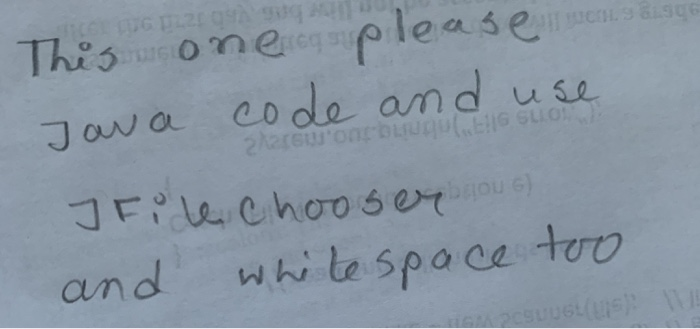 This one please
Java code and use
JFilechooser
and whitespace too